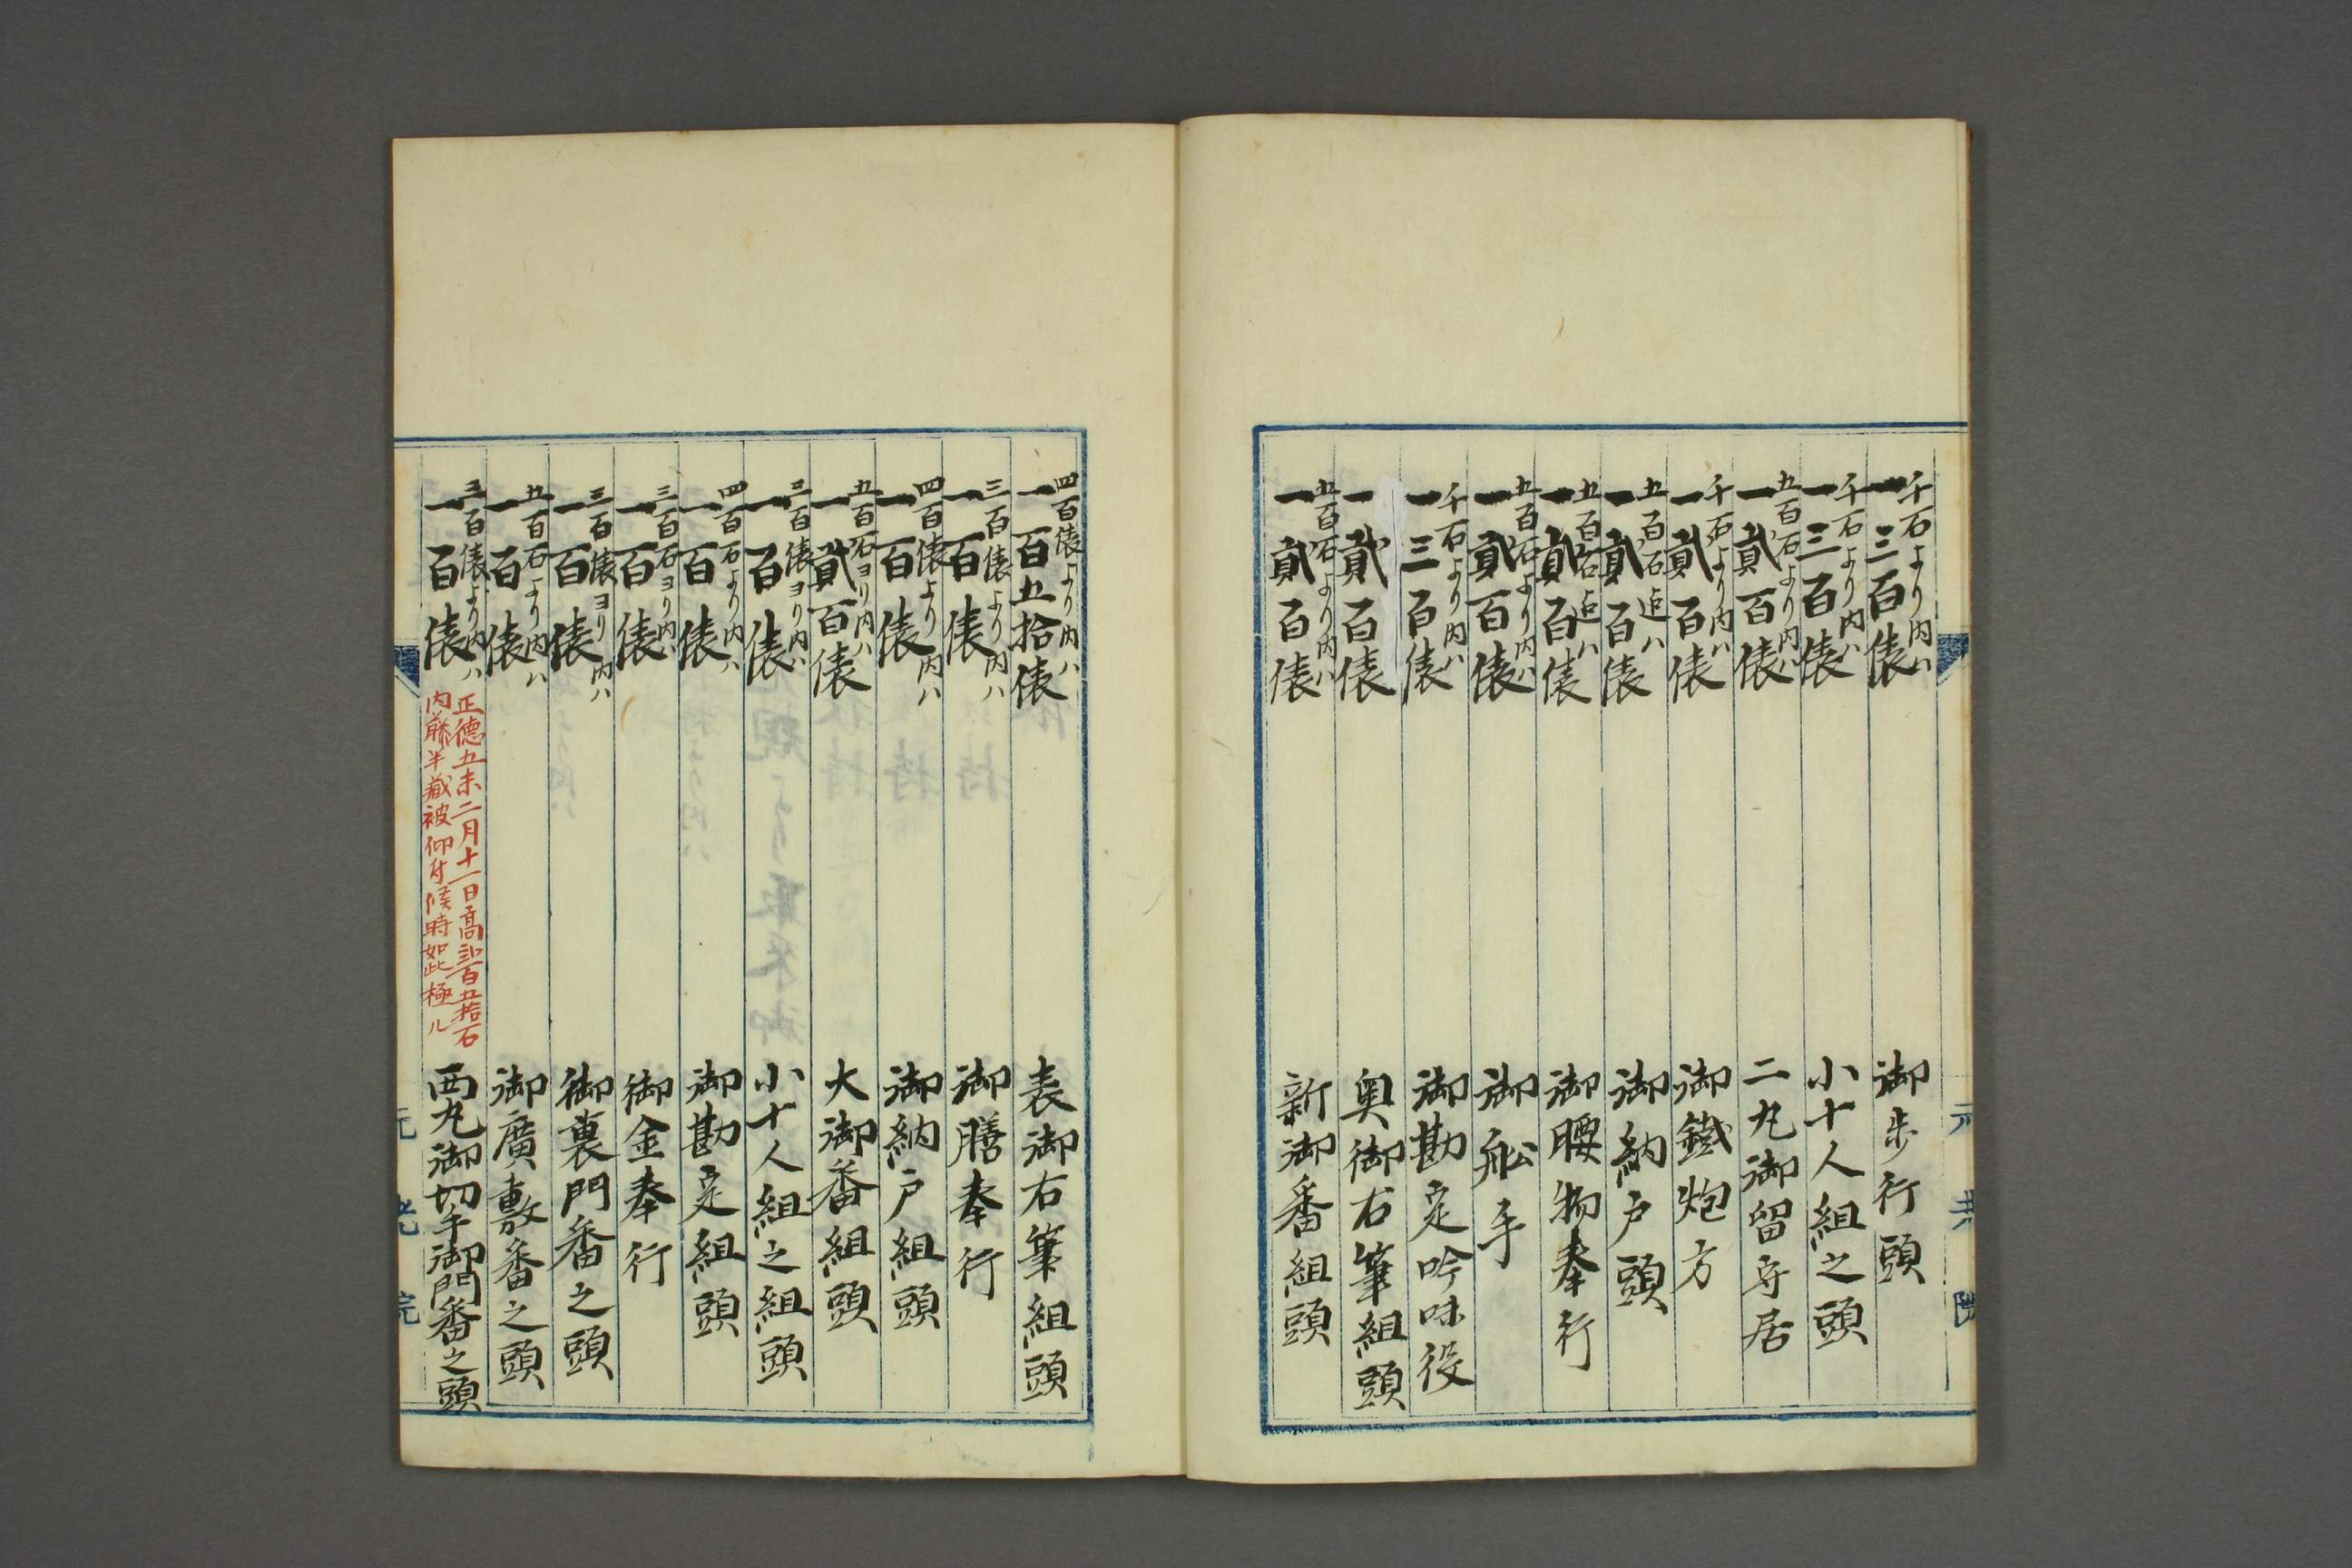 千石より内ハ
一三百俵 御歩行頭
千石より内ハ
一三百俵 小十人組之頭
五百石より内ハ
一貳百俵 二丸御留守居
千石より内ハ
一貳百俵 御鐵炮方
五百石迄ハ
一貳百俵 御納戸頭
五百石迄ハ
一貳百俵 御腰物奉行
五百石より内ハ
一貳百俵 御舩手
千石より内ハ
一三百俵 御勘定吟味役
一貳百俵 奥御右筆組頭
五百石より内ハ
一貳百俵 新御番組頭
四百俵より内ハ
一百五拾俵 表御右筆組頭
三百俵より内ハ
一百俵 御膳奉行
四百俵より内ハ
一百俵 御納戸組頭
五百石ヨリ内ハ
一貳百俵 大御番組頭
三百俵ヨリ内ハ
一百俵 小十人組之組頭
四百石より内ハ
一百俵 御勘定組頭
三百石ヨリ内ハ
一百俵 御金奉行
三百俵ヨリ内ハ
一百俵 御裏門番之頭
五百石より内ハ
一百俵 御廣敷番之頭
三百俵より内ハ
一百俵 西丸御切手御門番之頭
正德五未二月十一日高三百五拾石
内藤半藏被仰付候時如此極ル